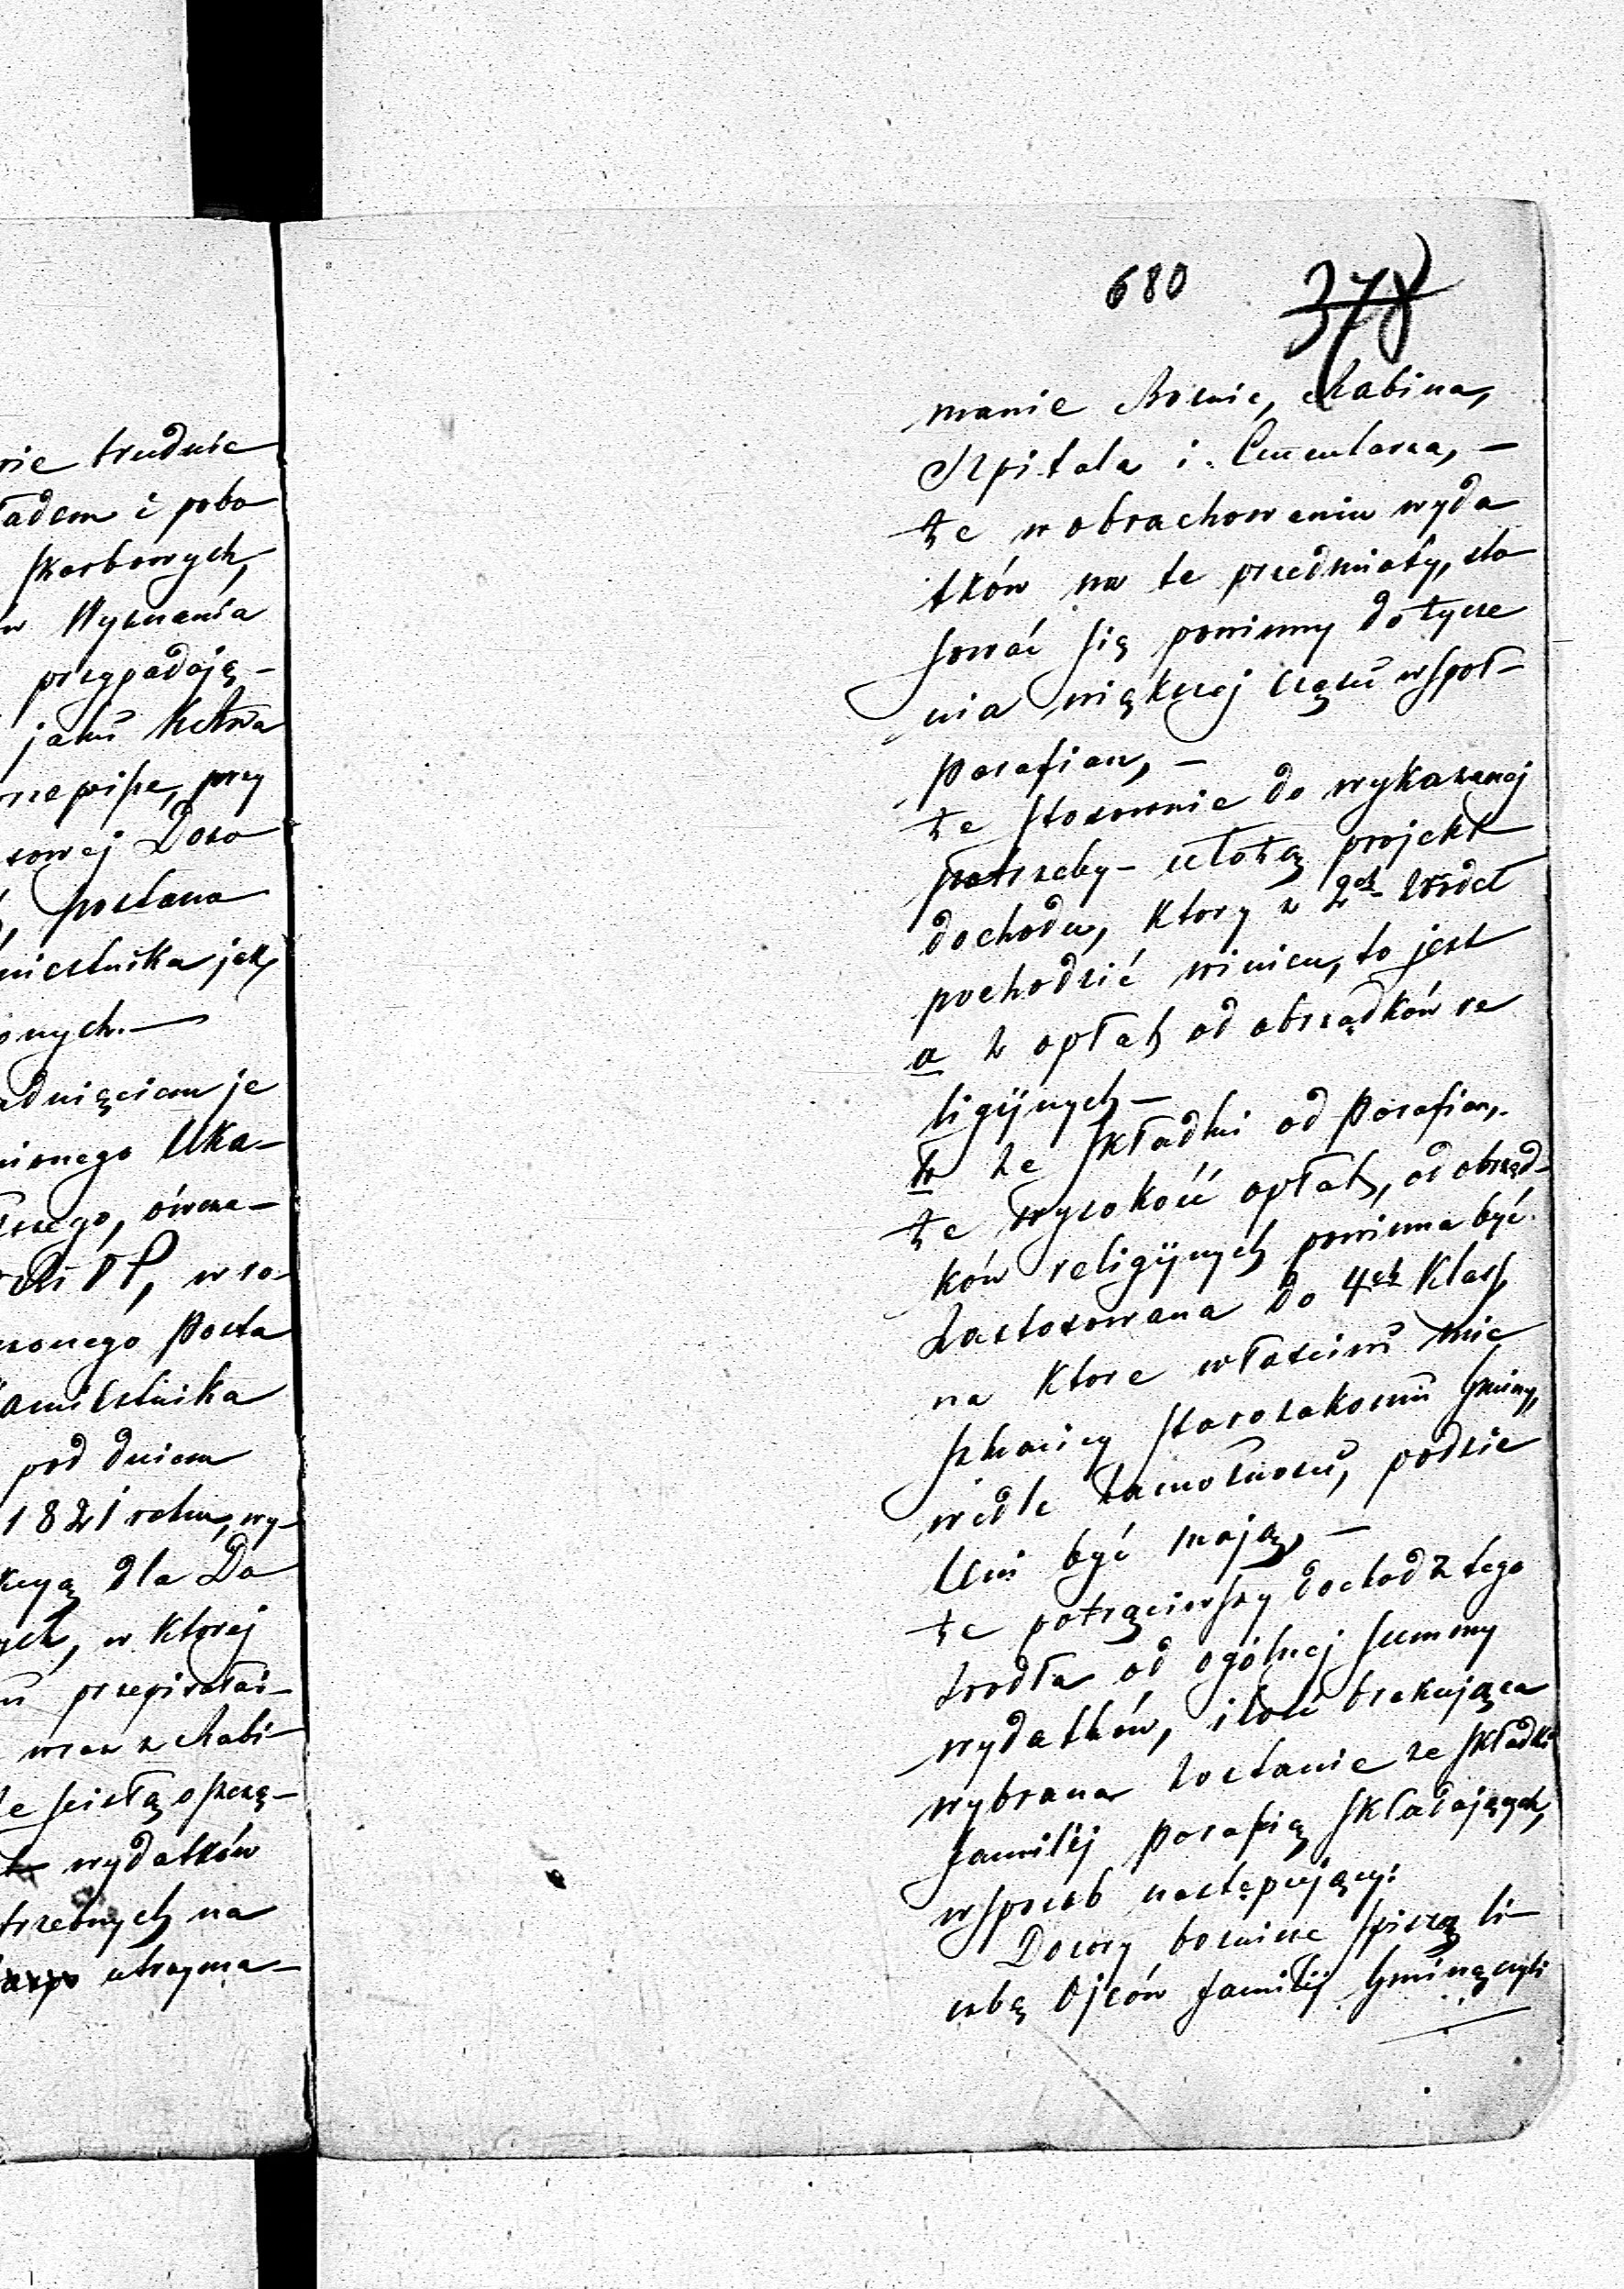 nie trudnić
ładem i pobo
skarbowych,
w Wyznania
przypadają-
jakiś
przepisze, przy
sowej Dozo
, postano
miestnika jak
onych.—
adnięciem je
nionego Uka-
szego, ówcze-
P, w ro-
zonego Posta
amiestnika
pod dniem
1821 roku, wy-
kcyą dla Do
ych, w ktorej
przepisałaś-
wraz z Rabi-
le scisłą oszczę-
wydatków
trzebnych na
utrzyma-
680 378
manie Boznic, Rabina,
Szpitala i Cmentarza, —
że w obrachowaniu wyda
tków na te przedmioty, sto
sować się powinny do życze
nia większej części wspoł-
parafian, —
że stosownie do wykazanej
potrzeby - ułożą projekt
dochodu, ktory z 2ch źrodeł
pochodzić winien, to jest
a z opłat od obrządków re
ligijnych —
b ze składki od Parafian,
że wysokość opłat, od obrząd-
ków religijnych powinna być
zastosowana do 4ch Klass,
na ktore właściwi mie
szkańcy starozakonni Gminy,
wedle zamożności, podzie
leni być mają, —
że potrąciwszy dochod z tego
źrodła od ogólnej summy
wydatków, ilość brakująca
wybrana zostanie ze składki
familij parafią składających,
w sposob następujący:
Dozory boznicze spiszą li-
czbę Ojców familij Gminę czyli